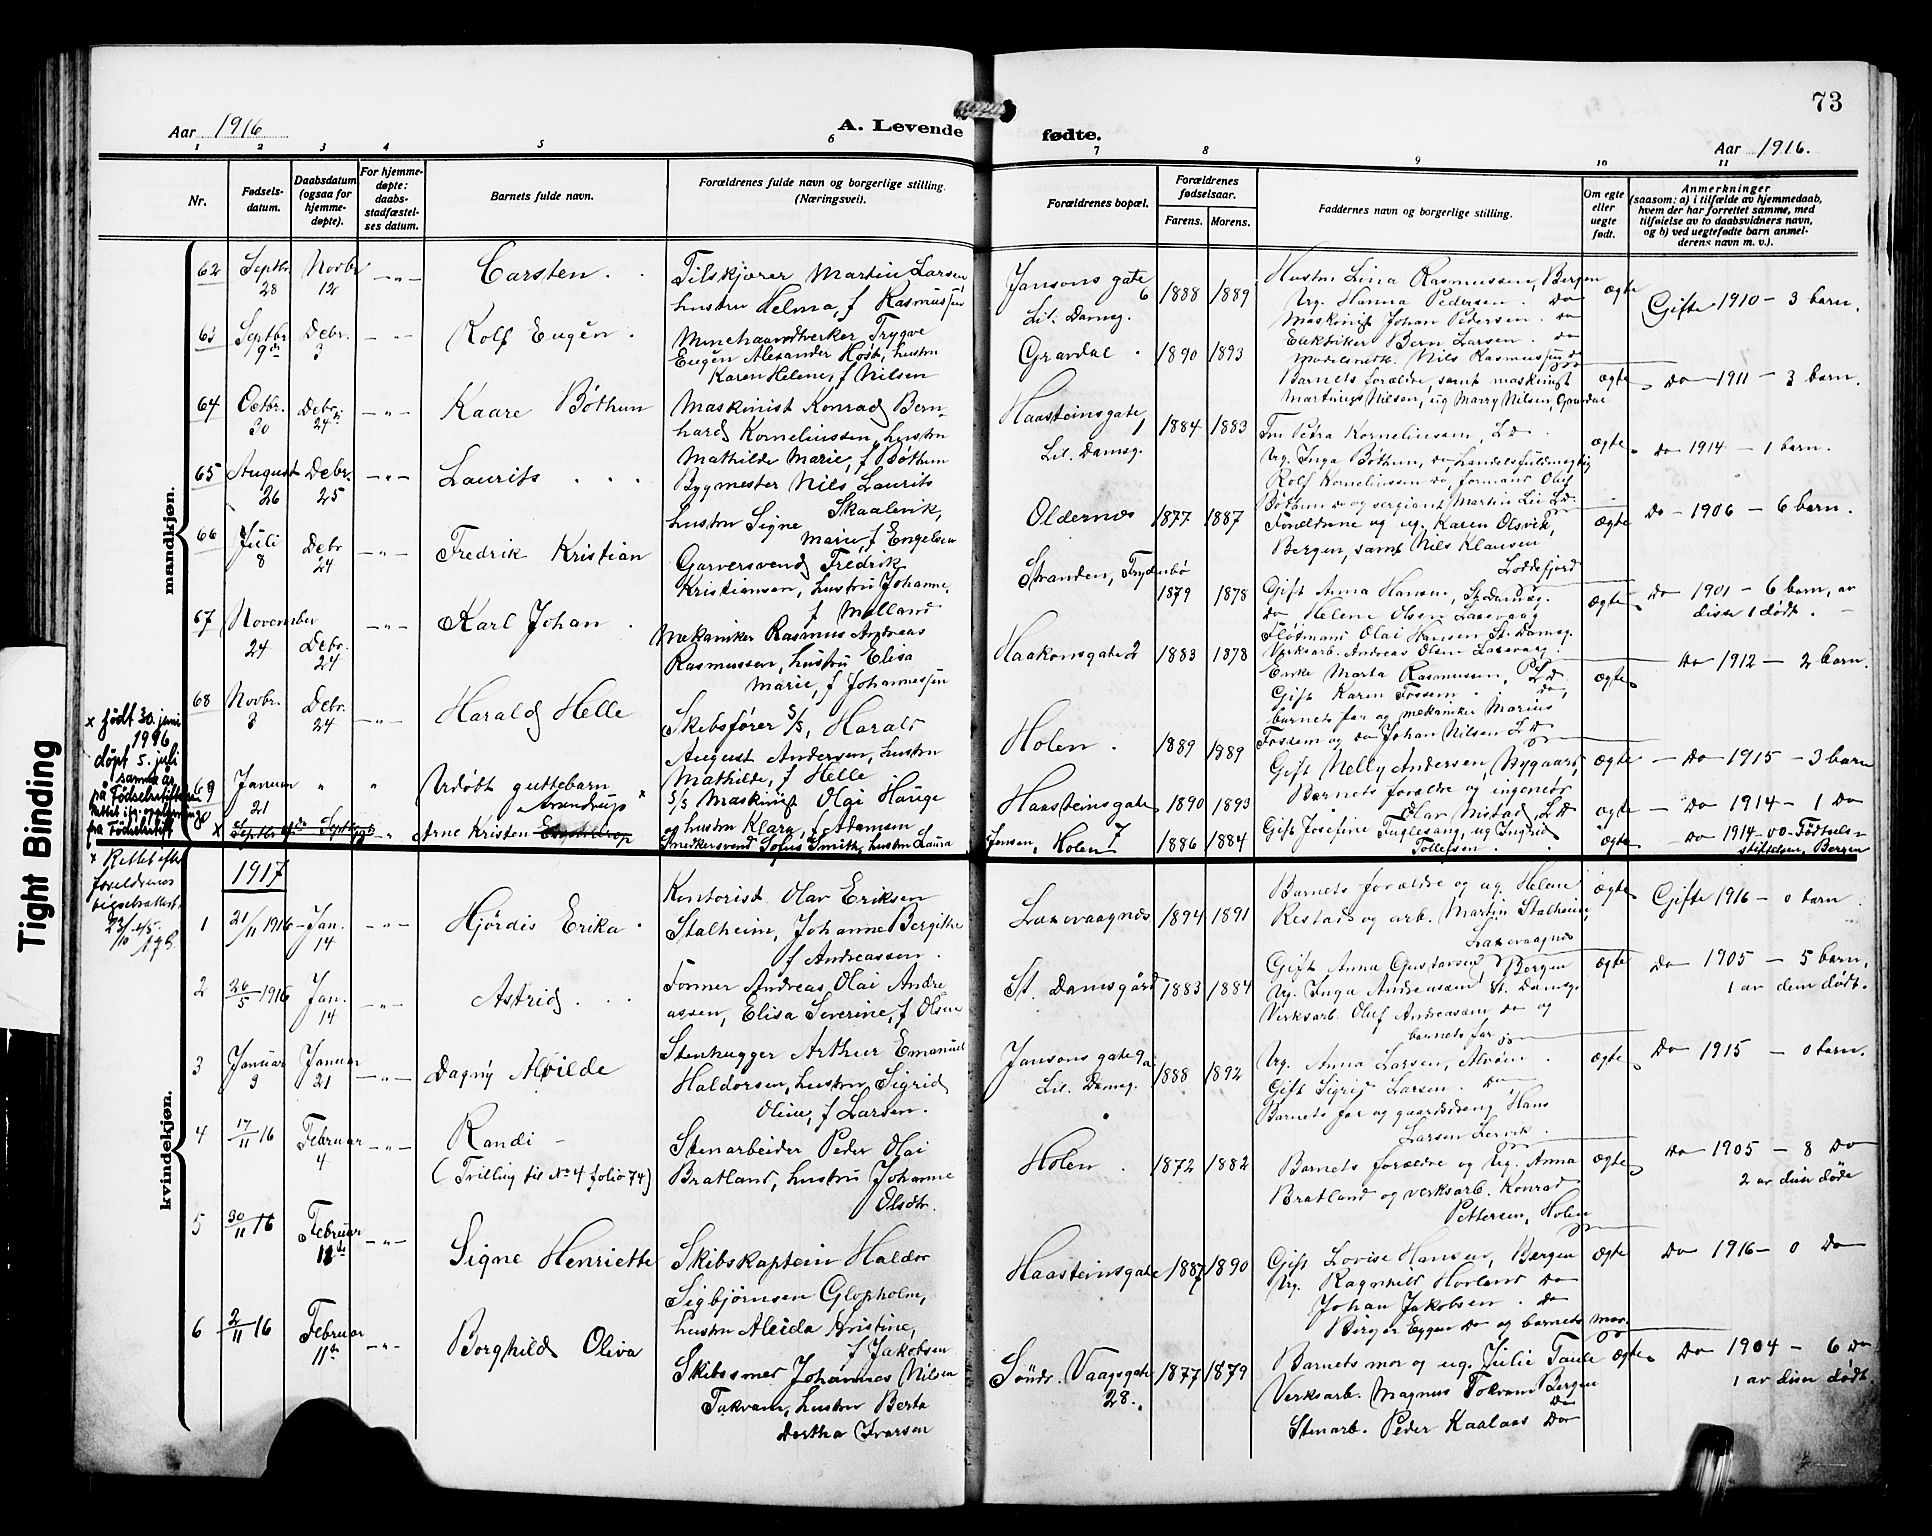 73
Aar 1916
A. Levende fødte.
Aar 1916.
1 2 3 4 5 6 7 8 9 10 11
Nr.
Fødsels-
datum.
Daabsdatum
(ogsaa for
hjemme-
døpte).
For hjemme-
døpte:
daabs-
stadfæstel-
ses datum.
Barnets fulde navn.
Forældrenes fulde navn og borgerlige stilling.
(Næringsvei).
Forældrenes bopæl.
Forældrenes
fødselsaar.
Farens. Morens.
Faddernes navn og borgerlige stilling.
Om egte
eller
uegte
født.
Anmerkninger
(saasom: a) i tilfælde av hjemmedaab,
hvem der har forrettet samme, med
tilføielse av to daabsvidners navn,
og b) ved uegtefødte barn anmel-
derens navn m. v.).
mandkjøn.
62 Septbr. 28 Novbr 12 Carsten.
Tilskjærer Martin Larsen
hustru Helma, f Rasmussen
Jansons gate 6
Lil. Damsg.
1888 1889
Hustru Lina Rasmussen, Bergen
Ug. Hanna Pedersen. Do
Maskinist Johan Pedersen. Do
Elektriker Bern Larsen. do
Modelsnedk. Nils Rasmussen do
ægte
Gifte 1910 - 3 barn.
63 Septbr 9de Debr. 3 Rolf Eugén.
Minehaandverker Trygve
Eugén Alexander Høst, hustru
Karen Helene, f Nilsen
Gravdal.
1890 1893
Barnets forældre, samt maskinist
Martinus Nilsen, ug Marry Nilsen, Gravdal
ægte
Do 1911 - 3 barn.
64 Octbr. 30 Debr. 24 Kaare Bøthun
Maskinist Konrad Bern-
hard Korneliussen, hustru
Mathilde Marie, f Bøthun
Haasteinsgate 1
Lil. Damsg.
1884 1883
Fru Petra Korneliussen, L D
Ug. Inga Bøthun, do, handelsfuldmegtig
Rolf Korneliussen do, formand Oluf
Bøthun do og sergiant Martin Lie LD.
ægte
Do 1914 - 1 barn.
65 August 26 Debr. 25 Laurits
Bygmester Nils Laurits
Skaalevik,
hustru Signe
Marie, f Engelsen
Oldernes
1877 1887
Forældrene og ug. Karen Olsvik,
Bergen, samt Nils Klausen
Loddefjord
ægte
Do - 1906 - 6 barn.
66 Juli 8 Debr 24 Fredrik Kristian
Garversvend Fredrik
Kristiansen, hustru Johanne,
f Melland
Stranden, Frydenbø
1879 1878
Gift Anna Hansen, St. Damsg.
do Helene Olsen Laxevaag
Fløtmand Olai Hansen St. Damsg.
Verksarb. Andreas Olsen Laxevaag.
ægte
Do 1901 - 6 barn, av
disse 1 dødt.
67 November 24 Debr. 24 Karl Johan.
Mekaniker Rasmus Andreas
Rasmussen, hustru Elisa
Marie, f Johannessen
Haakonsgate 2
1883 1878
Enke Marta Rasmussen,
Gift Karen Fossem. do,
barnets far og mekaniker Marius
Fossem og do Johan Nilsen L D
ægte
Do 1912 - 2 barn.
68 Novbr. 3 Debr. 24 Harald Helle
Skibsfører S/S, Harald
August Andersen, hustru
Mathilde, f Helle
Holen.
1889 1889
Gift Nelly Andersen, Nygaard,
Barnets forældre og ingeniør
Olav Mistad, L D
ægte
Do 1915 - 3 barn
69 Januar 21 Udøbt guttebarn
S/S Maskinist Olai Hauge
og hustru Klara, f Adamsen
Haasteinsgate 7
1890 1893
ægte
Do 1914 - 1 Do
70 x Arne Kristen Svendrup x
Snedkersvend Sofus Smith, hustru Laura
Jensen, Holen
1886 1884
Gift Josefine Fuglesang, ug Ingrid
Tollefsen
ægte
Do 1914 - 0 - Fødsels-
stiftelsen, Bergen
x født 30. juni
1916
døpt 5. juli
samme år
på Fødselsstiftelsen
x Rettet efter
foreldrenes
vigselsattest
23/10-45.
1917
kvindekjøn.
1 21/11 1916 Jan. 14 Hjördis Erika
Kontorist Olav Eriksen
Stalheim, Johanne Bergithe
f Andreassen.
Laxevaagnes
1894 1891
Barnets forældre og ug. Helene
Restad og arb. Martin Stalheim,
Laxevaagnes
ægte
Gifte 1916 - 0 barn.
2 26/5 1916 Jan. 14 Astrid
Former Andreas Olai Andre
assen, Elisa Severine, f Olsen
St. Damsgård
1883 1884
Gift Anna Gustavsen, Bergen
Ug. Inga Andreassen St. Damsg.
Verksarb. Oluf Andreassen do og
barnets far
ægte
Do 1905 - 5 barn,
1 av dem dødt.
3 Januar 3 Januar 21 Dagny Alvilde
Stenhugger Arthur Emanuel
Haldorsen, hustru Sigrid
Oline, f Larsen.
Jansons gate 9a
Lil. Damsg.
1888 1892
Ug. Anna Larsen, Alvøen.
Gift Sigrid Larsen. do
Barnets far og gaarddreng Hans
Larsen Lervik.
ægte
Do 1915 - 0 barn.
4 17/11 16 Februar 4 Randi -
(Trilling til No 4 folio 74)
Stenarbeider Peder Olai
Bratland, hustru Johanne
Olsdtr.
Holen.
1872 1882
Barnets forældre og Ug. Anna
Bratland og verksarb. Konrad
Pettersen, Holen
ægte
Do 1905 - 8 Do
2 av disse døde
5 30/11 16 Februar 11te Signe Henriette
Skibskaptein Haldor
Sigbjørnsen Glopholm,
hustru Aleida Kristine,
f Jakobsen
Haasteinsgate
1887 1890
Gift Lovise Hansen, Bergen
Ug. Ragnhild Hovland Do
Johan Jakobsen. Do
Birger Eggen Do og barnets mor.
ægte
Do 1916 - 0 Do
6 2/11 16 Februar 11te Borghild Oliva
Skibssmed Johannes Nilsen
Tokvam, hustru Berta
Dorthea Ivarsen
Söndr. Vaagsgate
28.
1877 1879
Barnets mor og ug. Julie Taule
Verksarb. Magnus Tokvam Bergen
Stenarb. Peder Kaalaas Do
ægte
Do 1904 - 6 Do
1 av disse dødt.
Tight Binding